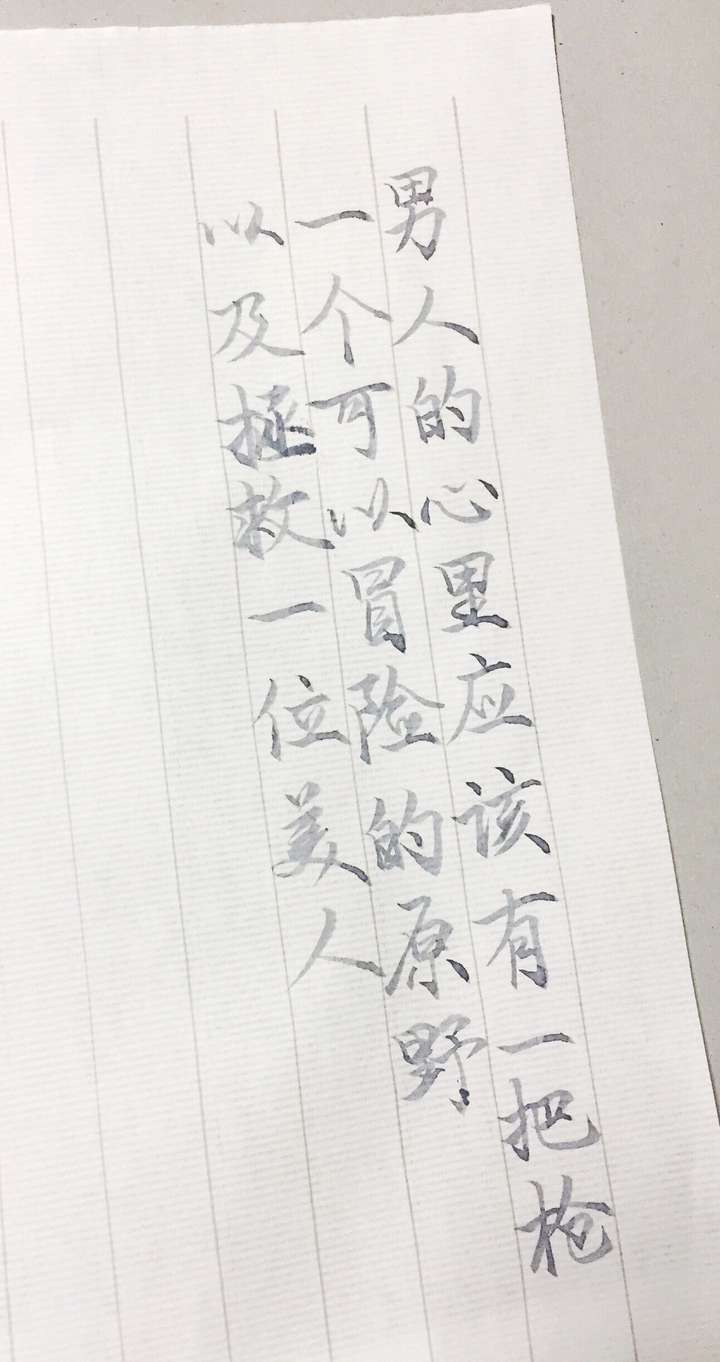 男人的心里应该有一把枪
一个可以冒险的原野
以及拯救一位美人